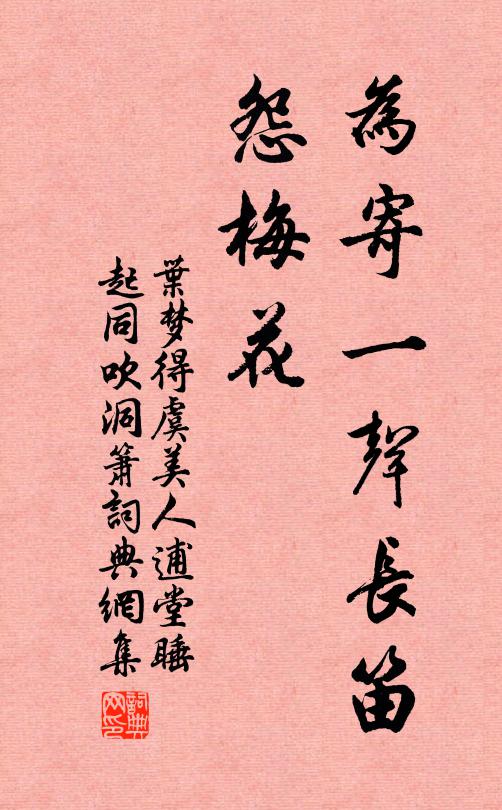 為寄一聲長笛
怨梅花
葉梦得虞美人逋堂睡
起同吹洞簫詞典網集
詞典
网印